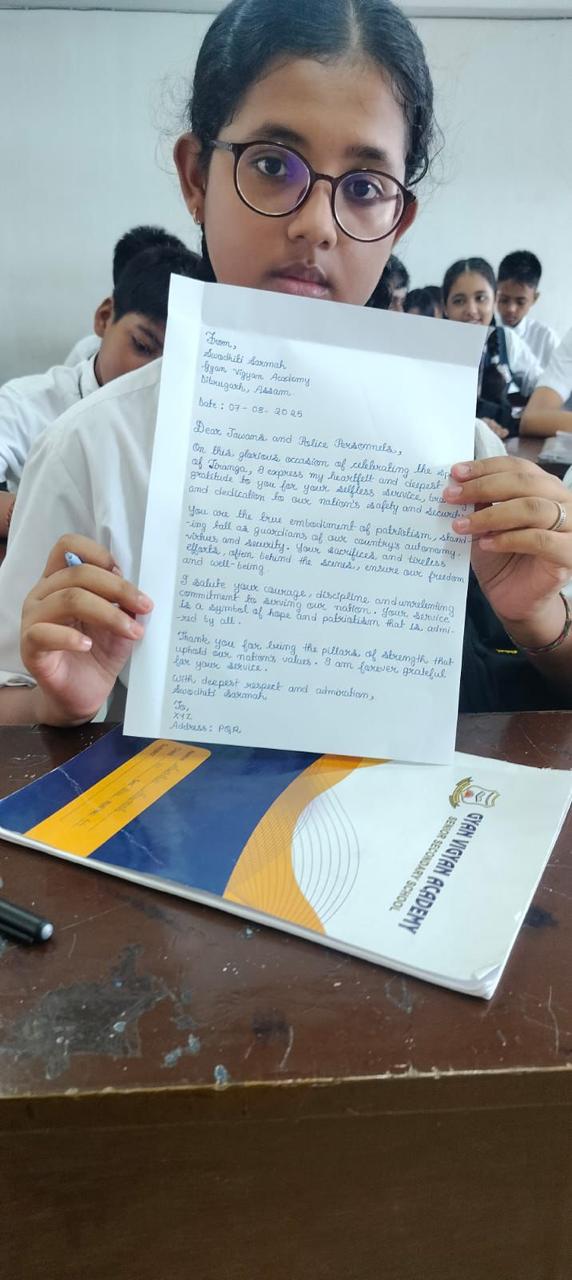 From,
Swadhiti Sarmah
Gyan Vigyan Academy
Dibrugarh, Assam
Date : 07-08-2025
Dear Jawans and Police Personnels,
On this glorious occasion of celebrating the
of Tiranga, I express my heartfelt and deepest
gratitude to you for your selfless service,
and dedication to our nation's safety and security.
You are the true embodiment of patriotism, stand-
-ing tall as guardians of our country's autonomy,
virtues and security. Your sacrifices and tireless
efforts, often behind the scenes, ensure our freedom
and well-being.
I salute your courage, discipline and unrelenting
commitment to serving our nation. Your service
is a symbol of hope and patriotism that is admi-
-red by all.
Thank you for being the pillars of strength that
uphold our nation's values. I am forever grateful
for your service.
With deepest respect and admiration,
Swadhiti Sarmah
To,
XYZ
Address: PQR
GYAN VIGYAN ACADEMY
SENIOR SECONDARY SCHOOL